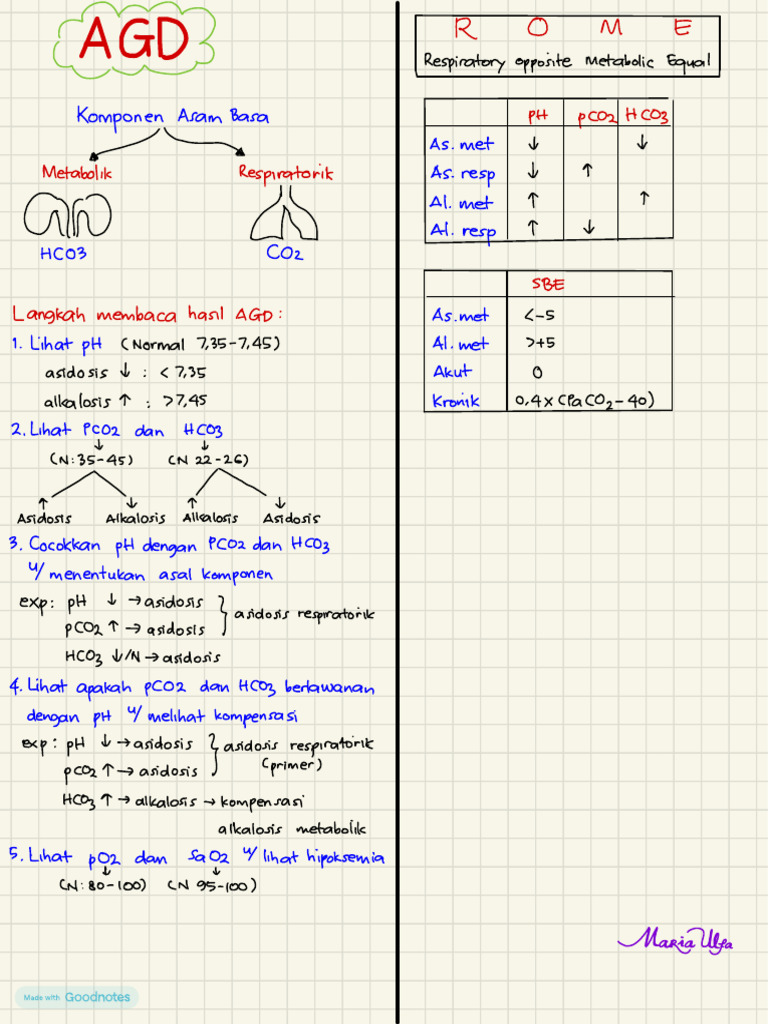 AGD
Komponen Asam Basa
Metabolik Respiratorik
HCO3 CO2
Langkah membaca hasil AGD :
1. Lihat pH (Normal 7,35-7,45)
asidosis ↓ : < 7,35
alkalosis ↑ : >7,45
2. Lihat PCO2 dan HCO3
↓ ↓
(N:35-45) (N 22-26)
↑ ↓ ↑ ↓
Asidosis Alkalosis Alkalosis Asidosis
3. Cocokkan pH dengan PCO2 dan HCO3
u/ menentukan asal komponen
exp: pH ↓ → asidosis
pCO2 ↑ → asidosis } asidosis respiratorik
HCO3 ↓/N → asidosis
4. Lihat apakah pCO2 dan HCO3 berlawanan
dengan pH u/ melihat kompensasi
exp : pH ↓ → asidosis } asidosis respiratorik
pCO2 ↑ → asidosis (primer)
HCO3 ↑ → alkalosis → kompensasi
alkalosis metabolik
5. Lihat pO2 dan SaO2 u/ lihat hipoksemia
↓ ↓
(N:80-100) (N 95-100)
Made with Goodnotes
R O M E
Respiratory opposite Metabolic Equal
pH pCO2 HCO3
As. met ↓ ↓
As. resp ↓ ↑
Al. met ↑ ↑
Al. resp ↑ ↓
SBE
As. met <-5
Al. met >+5
Akut 0
Kronik 0,4 x (PaCO2-40)
Maria Ulfa